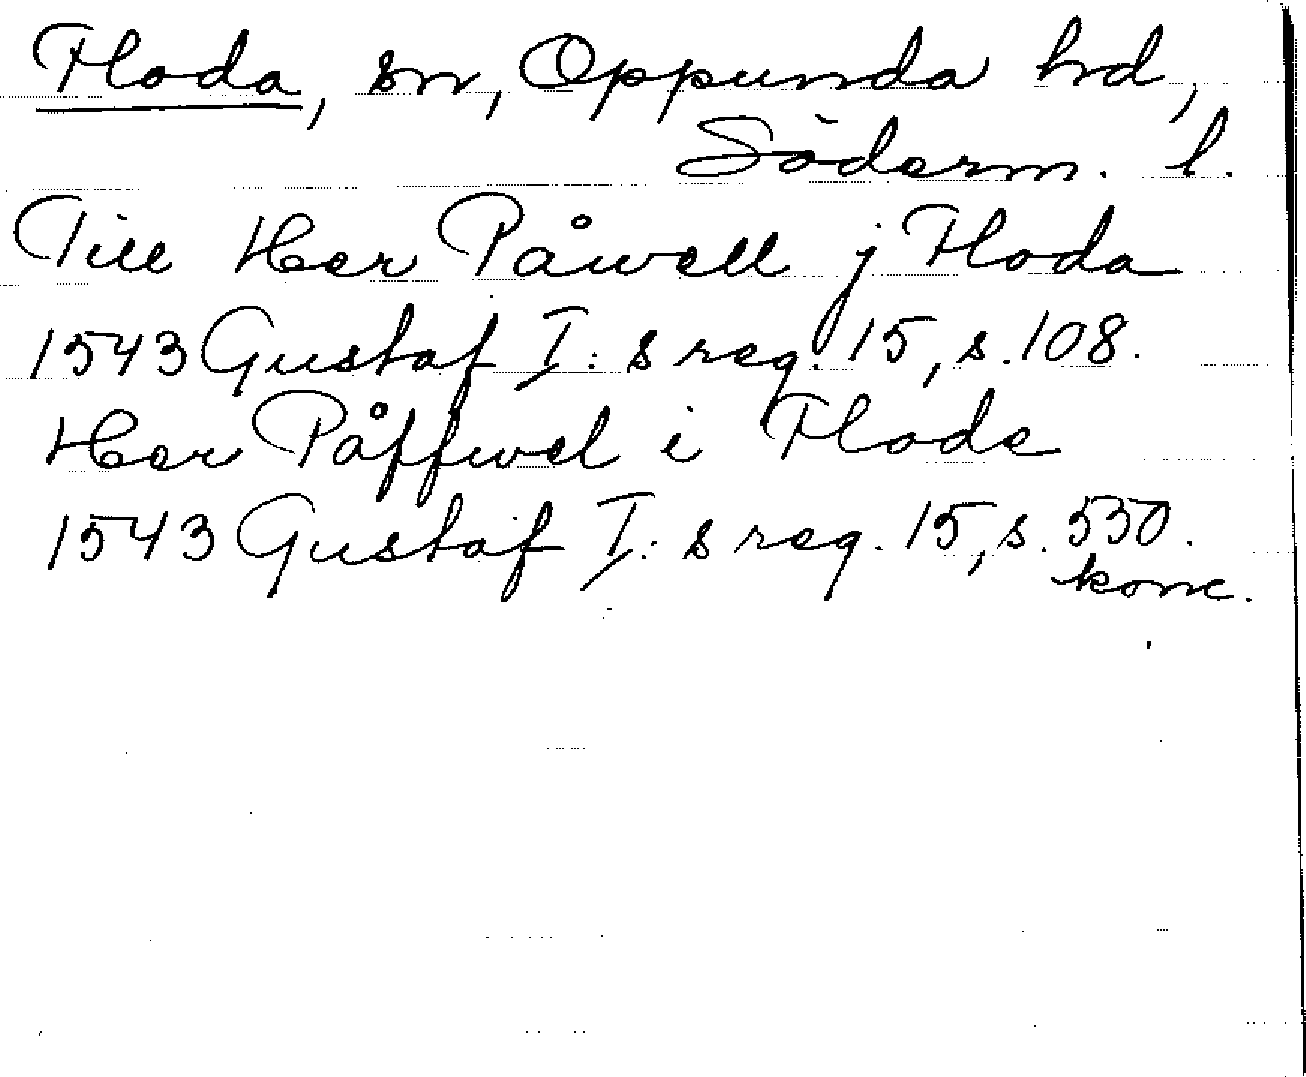 Floda, sn, Oppunda hd,
Söderm. l.
Till Her Påwell j Floda
1543 Gustaf I:s reg. 15, s. 108.
Her Påffwel i Flode
1543 Gustaf I:s reg. 15, s. 530.
konc.